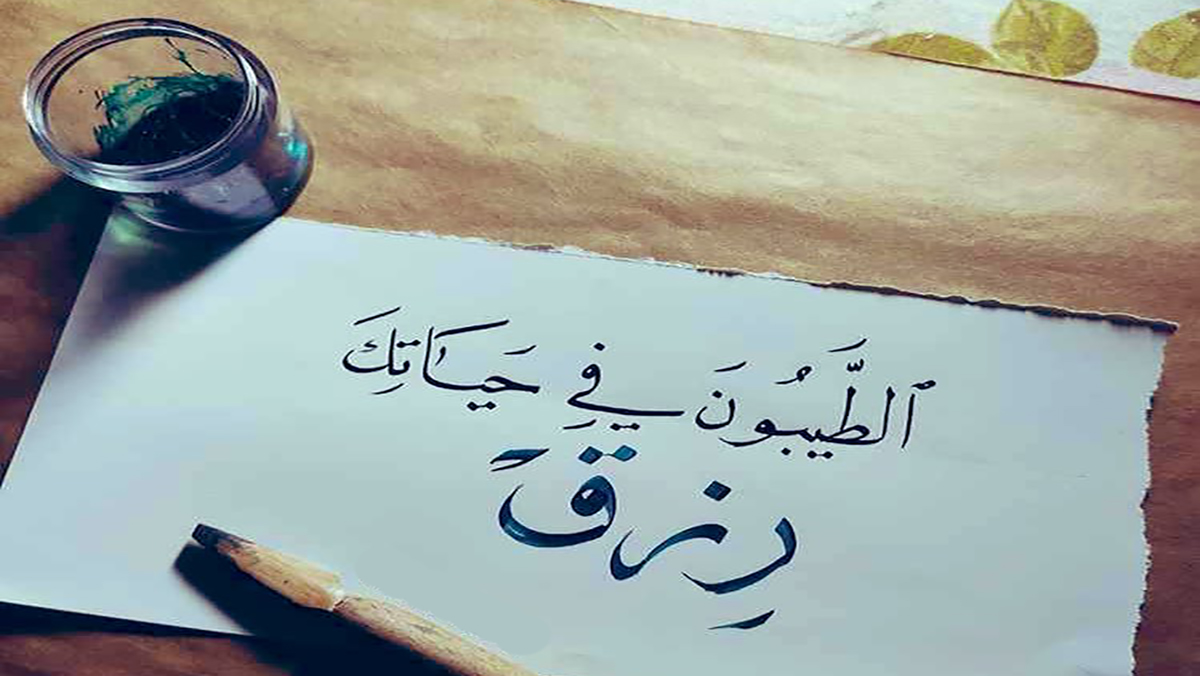 ٱلطَّيبُونَ فِي حَيَاتِكَ
رِزقٌ